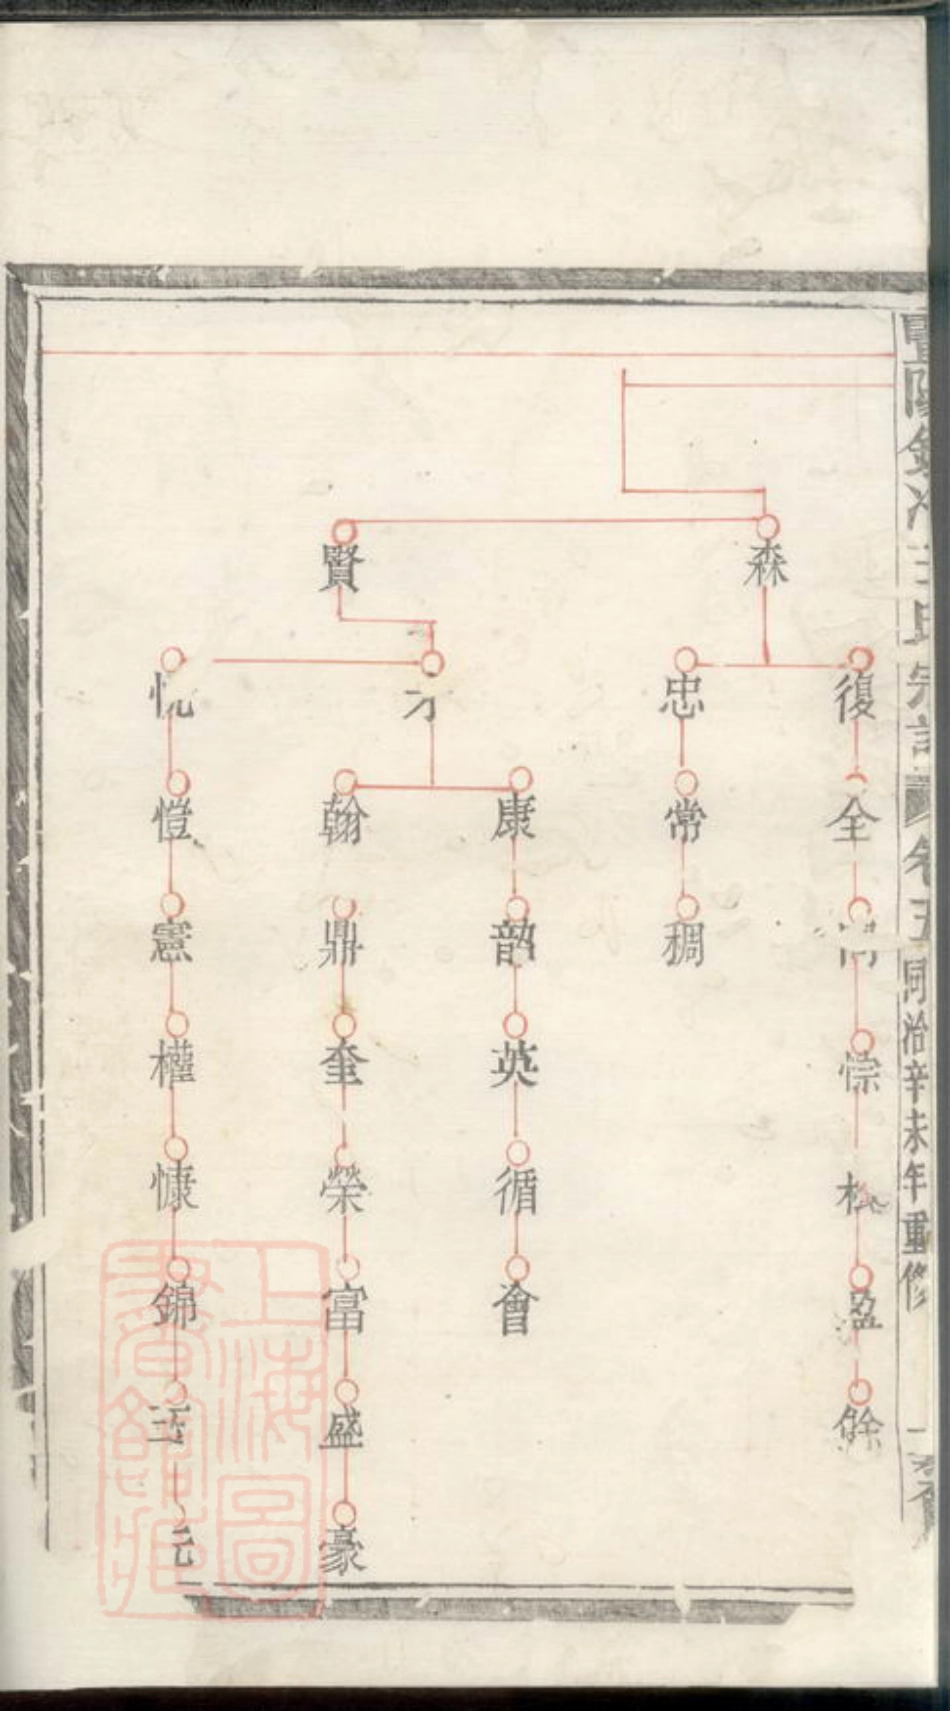 暨陽
王氏宗譜
卷五
同治辛未年重修
森
復
全
悰
松
盈
餘
忠
常
稠
賢
才
康
韵
英
循
會
翰
鼎
奎
榮
富
盛
豪
愷
憲
權
慷
錦
玉
元
上海圖書館藏